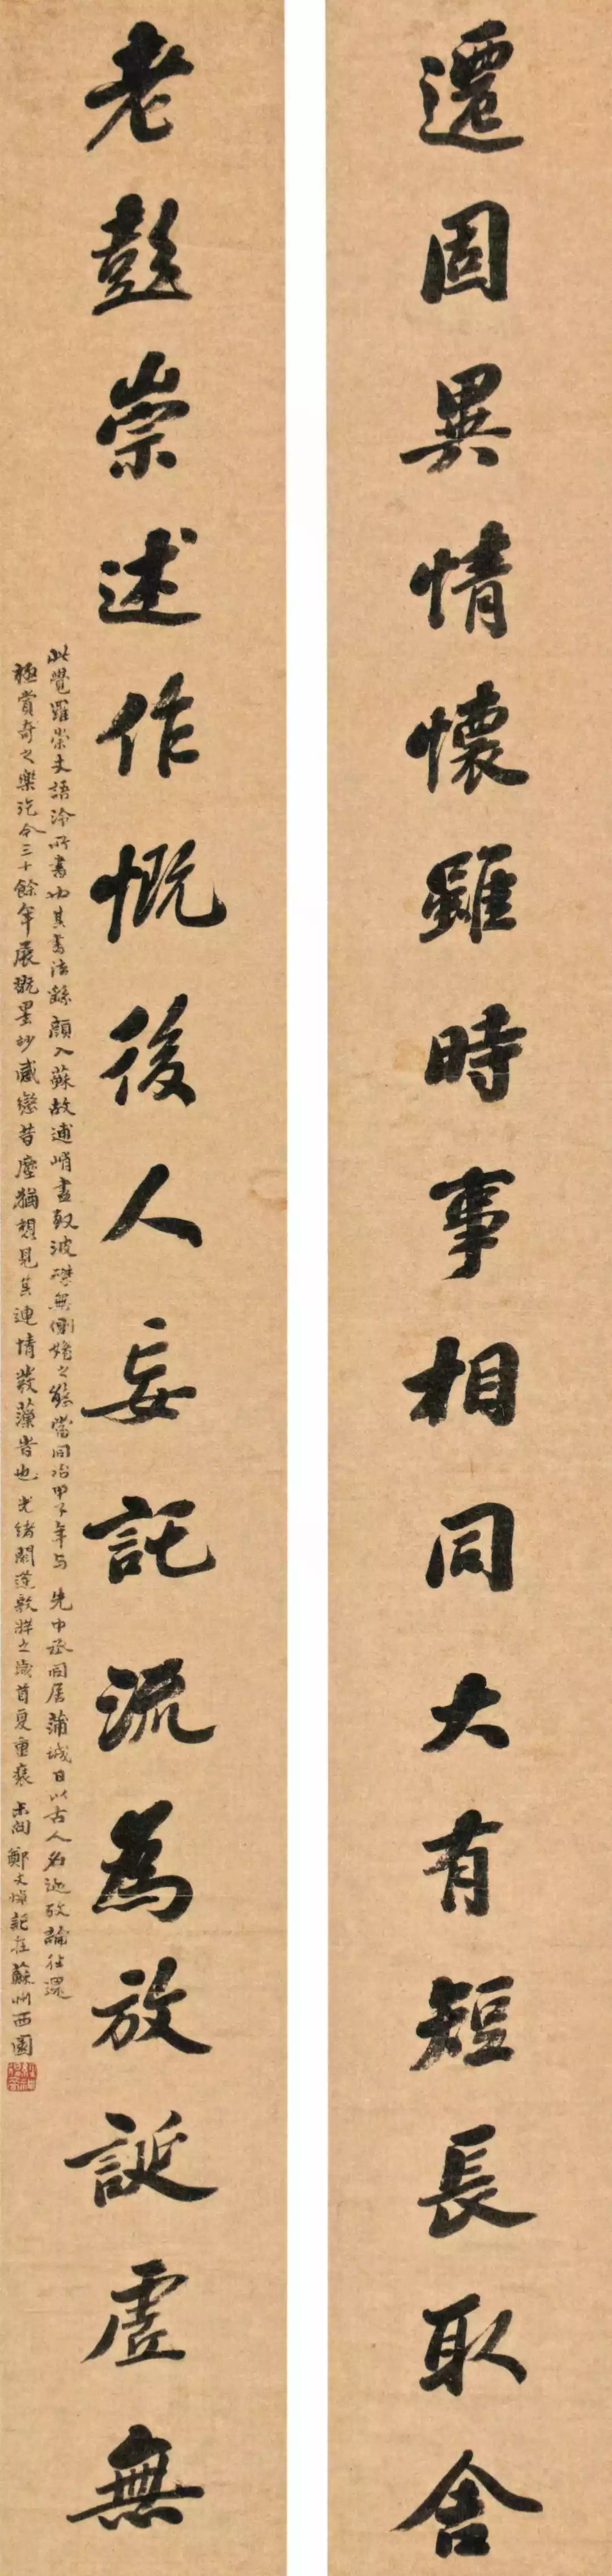 遷固異情懷雖時事相同大有短長取舍
老彭崇述作慨後人妄託流為放誕虛無
此覺羅崇文語泠所書也其書法繇顏入蘇故逋峭盡致波磔無側媚之態當同治甲子年与先中丞同居蒲城日以古人名迹攷論往還
極賞奇之樂迄今三十餘年展翫墨妙感戀昔塵猶想見其連情發藻昔也光緒閼逢敦牂之歲首夏重裝未問鄭文焯記在蘇州西園